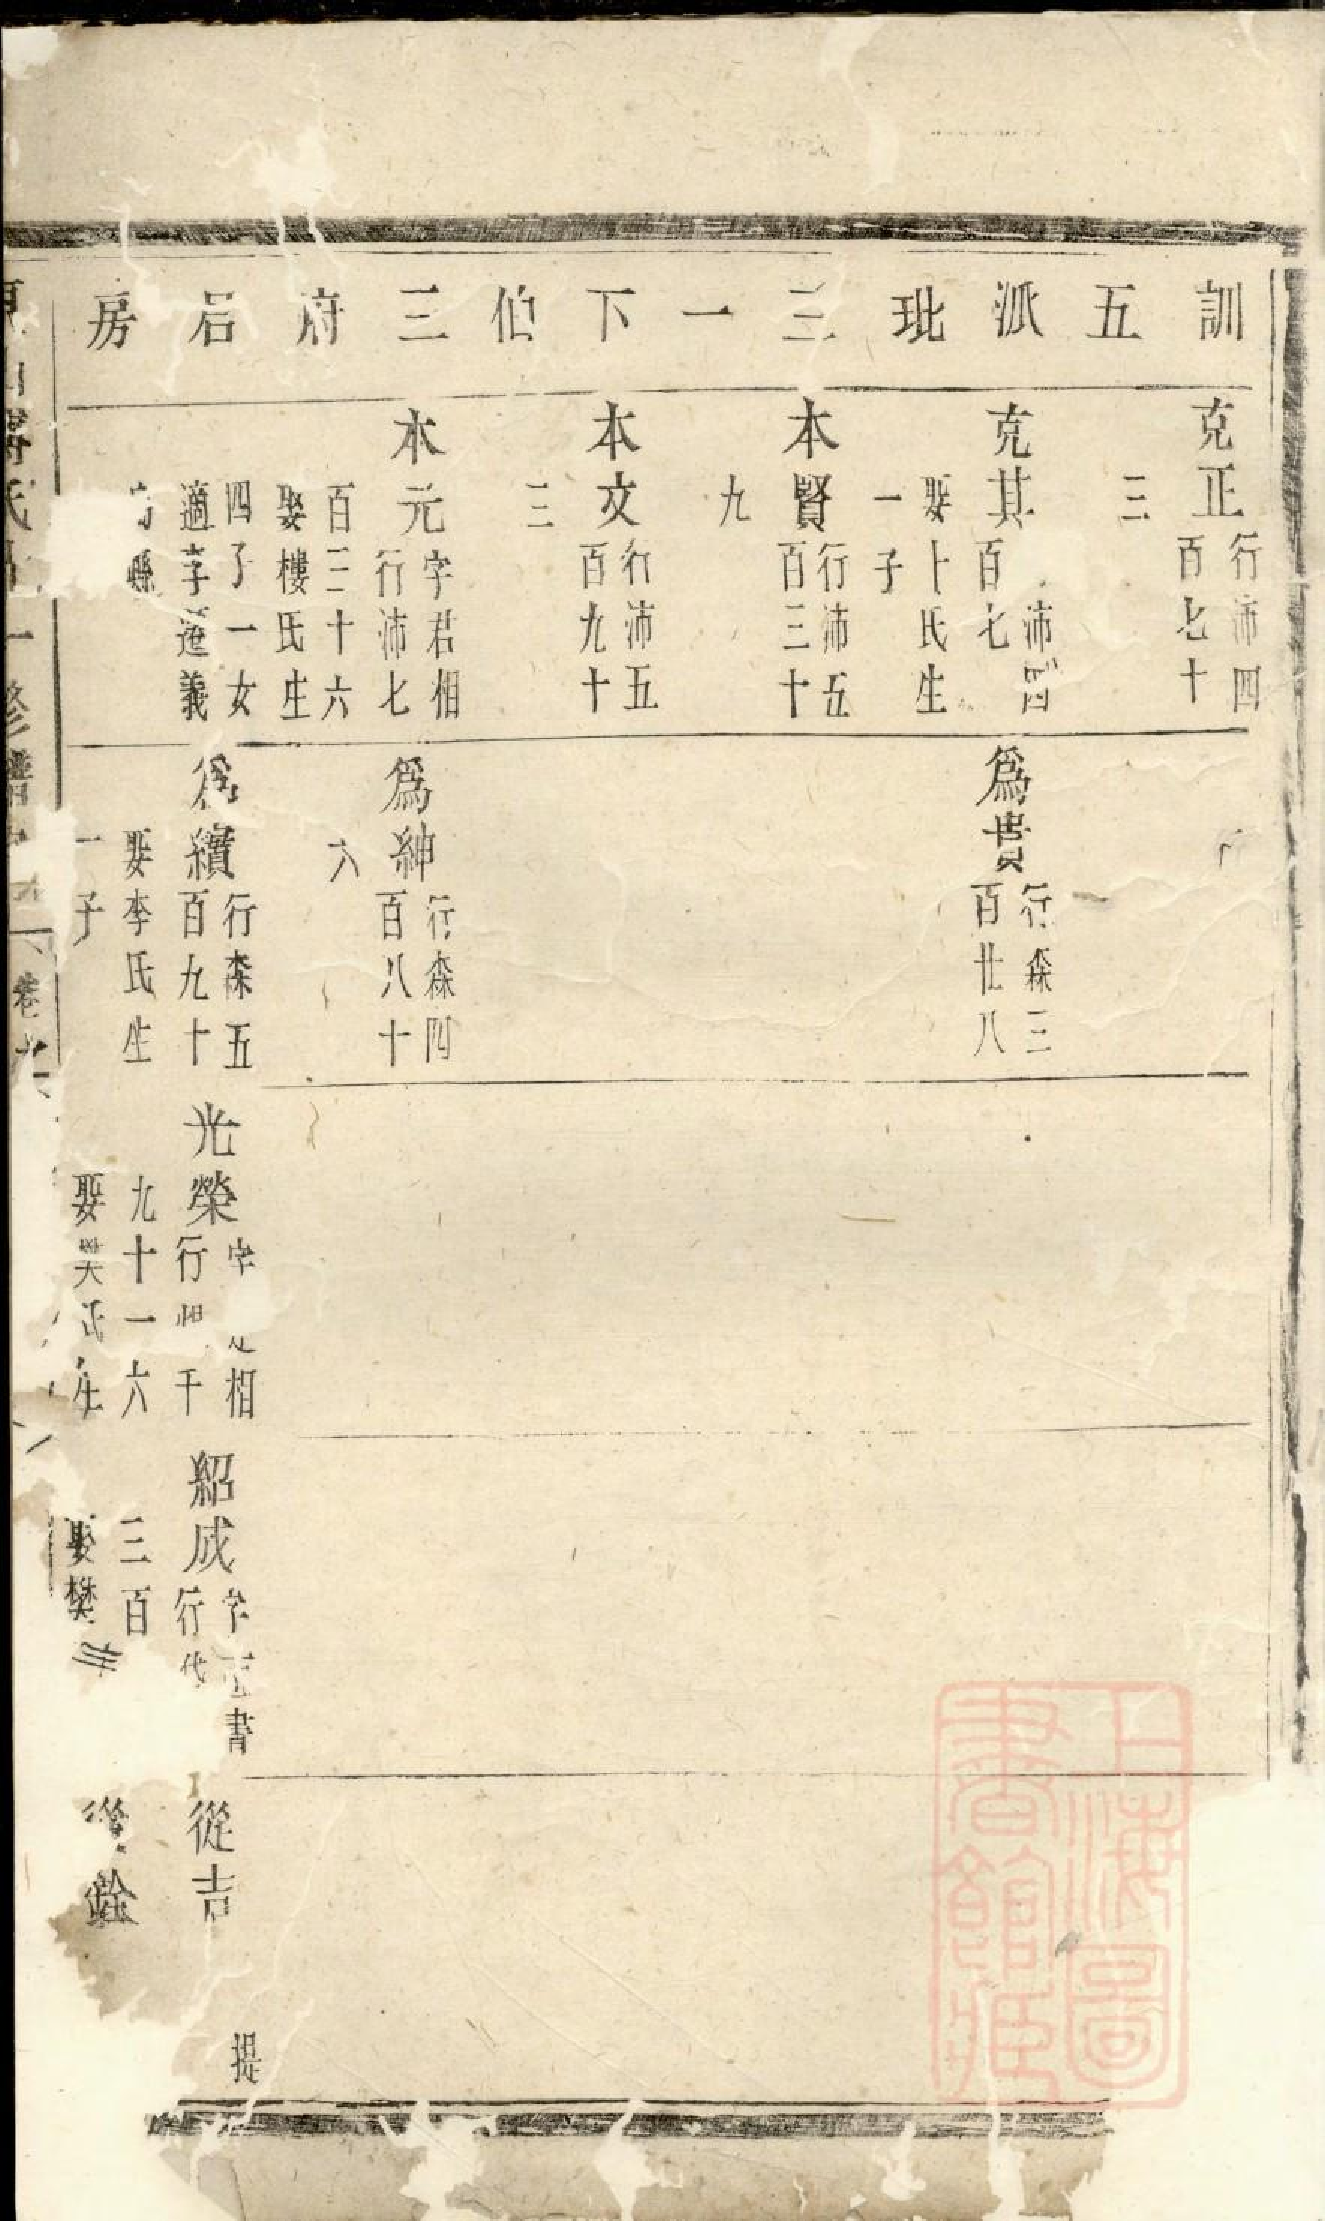 訓五派玭三一下伯三府君房
克正
行沛四
百七十
三
克其
沛四
百七
娶卜氏生
一子
本賢
行沛五
百三十
九
本文
行沛五
百九十
三
本元
字君相
行沛七
百三十六
娶樓氏生
四子一女
適孝義
爲貴
行森三
百廿八
爲紳
行森四
百八十
六
爲纘
行森五
百九十
娶李氏生
一子
光榮
字 相
行 千
九十一六
娶 氏生
紹成
字 書
行
三百
娶樊
從吉
銓
提
卷
上海圖書館藏